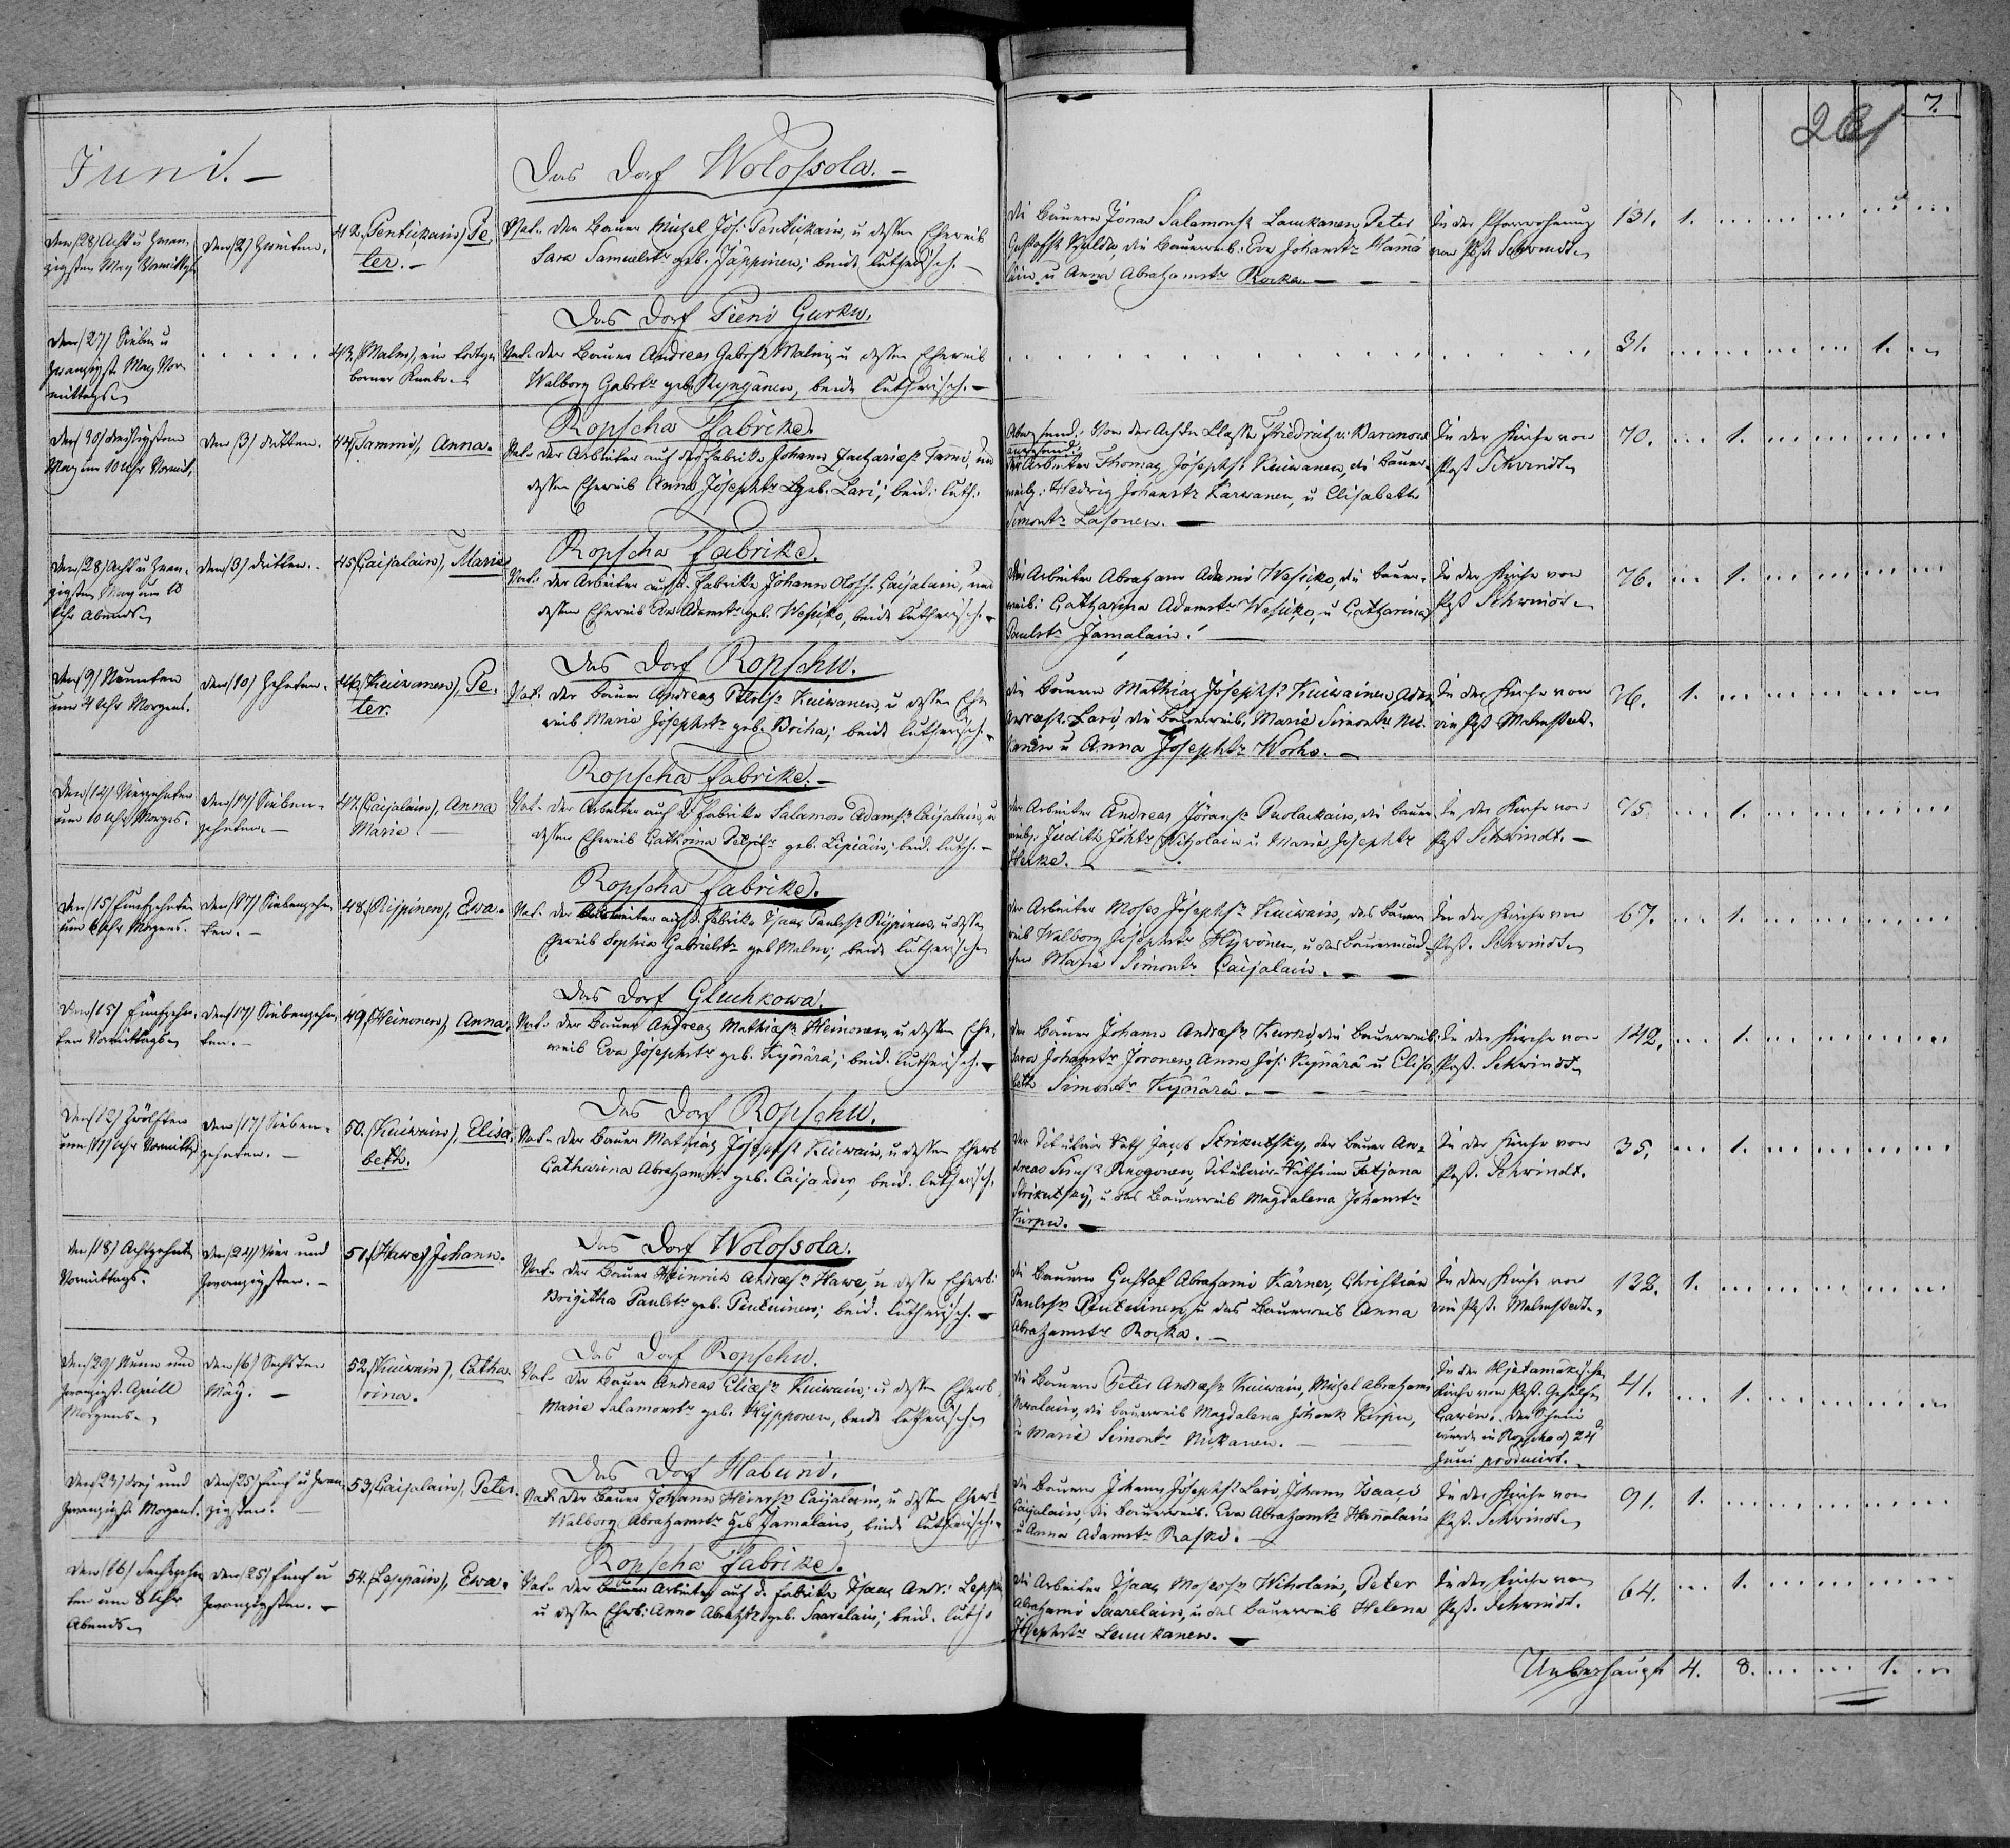 7.
Juni. —
Das Dorf Wolossola. —
Den (28) Acht u Zwan-
zigsten May Vormittags
Den (2) Zweiten.
42. (Pentickain) Pe-
ter. —
Vat. der Bauer Michel Jos: Pentickain, u dessen Eheweib
Sara Samuelstr geb. Jäppinen; beide lutherisch. —
die Bauern Jonas Salamonss Laukanen, Peter
die Bauerweib. Eva Johanstr
u Anna Abrahamstr Rocka. —
In der Pfarrwohnung
von Past. Schwindt.
131. 1.
Das Dorf Pieni Gurku.
Den (27) Sieben u
zwanzigst. May Vor-
mittags
43. (Malm), ein todtge-
borner Knabe.
Vat. der Bauer Andreas Gabrss Malm, u dessen Eheweib
Walborg Gabrstr geb. beide lutherisch. —
31. 1.
Ropscha Fabrike.
Den (30) dreissigsten
May um 10 Uhr Vormit.
Den (3) dritten.
44. (Tammi), Anna.
Vat. der Arbeiter auf der Fabrike Johann Zachariass Tammi, und
dessen Eheweib Anna Josephstr geb. Lari; beid. luth.
Von der Achten Classe Friedrich v: Baranow
anwesend:
der Arbeiter Thomas Josephs: Kuiwanen, die Bauer-
weib.: Hedwig Johanstr Karwanen, u Elisabeth
Simonstr Lasonen. —
In der Kirche von
Past Schwindt
70. 1.
Ropscha Fabrike.
Den (28) Acht u Zwan-
zigsten May um 10
Uhr Abends
Den (3) dritten.
45. (Caijalain), Maria
Vat. der Arbeiter auf d. Fabrike Johann Olofss: Caijalain, und
dessen Eheweib Eva Adamstr geb. Wesiko, beide lutherisch. —
Die Arbeiter Abraham Adami Wesicko, die Bauer-
weib: Catharina Adamstr Wesicko, u Catharina
Paulstr Jamalain. —
In der Kirche von
Past Schwindt
76. 1.
Das Dorf Ropschu.
Den (9) Neunten
um 4 Uhr Morgens.
Den (10) Zehnten.
46. (Kuiwanen), Pe-
ter.
Vat. der Bauer Andreas Peterss: Kuiwanen, u dessen Ehe-
weib Maria Josephstr geb. Briha; beide lutherisch. —
die Bauern Mathias Josephss Kuiwainen, Adam
Lari, die Bauerweib. Maria Simonstr
u Anna Josephstr Worho. —
In der Kirche von
Past Malmstedt.
76. 1.
Ropscha Fabrike. —
Den (14) Vierzehnten
um 10 Uhr Morgs.
Den (17) Sieben-
zehnten. —
47. (Caijalain), Anna
Maria. —
Vat. der Arbeiter auf d. Fabrike Salamon Adamss Caijalain, u
dessen Eheweib Cathrina geb. Lipiäin; beid. luth. —
der Arbeiter Andreas Jöranss die Bauer-
weib. Judith Johstr Wiholain u Maria Josephstr
Herke.
In der Kirche von
Past Schwindt. —
75. 1.
Ropscha Fabrike.
Den (15) Fünfzehnten
um 6 Uhr Morgens.
Den (17) Siebenzehn-
ten. —
48. (Rijpinen), Ewa.
Vat. der Arbeiter auf d. Fabrike Isaac Paulss Rijpinen, u dessen
Eheweib Sophia Gabrielstr geb Malm; beide lutherisch
der Arbeiter Moses Josephss Kuiwain, das Bauer-
weib Walborg Josephstr Hyvönen, u das Bauermäd-
chen Maria Simonstr Caijalain. —
In der Kirche von
Past. Schwindt
67. 1.
Das Dorf Gluchkowa.
Den (15) Fünfzehn-
ten Vormittags
Den (17) Siebenzehn-
ten. —
49. (Heinonen) Anna.
Vat. der Bauer Andreas Mathiass Heinonen, u dessen Ehe-
weib Eva Josephstr geb. Kynärä; beid. lutherisch. —
der Bauer Johann Andrss Kurko, die Bauerweib:
Sara Johanstr Joronen, Anna Jos: Kynärä u Elisa-
beth Simonstr Kynärä. —
In der Kirche von
Past. Schwindt
142. 1.
Das Dorf Ropschu.
Den (12) Zwölften
um 11 Uhr Vormittg
Den (17) Sieben-
zehnten. —
50. (Kuiwain), Elisa-
beth.
Vat. der Bauer Mathias Josephss Kuiwain, u dessen Ehewb
Catharina Abrahamstr geb. Caijander, beid. lutherisch.
der Titulair Rath Jacob Strikutsky, der Bauer An-
dreas Titulair-Räthinn Tatjana
Strikutsky, u das Bauerweib Magdalena Johanstr
Kirpu. —
In der Kirche von
Past. Schwindt.
35. 1.
Das Dorf Wolossola.
Den (18) Achtzehnte
Vormittags.
Den (24) Vier und
zwanzigsten. —
51. (Hawe) Johann.
Vat. der Bauer Heinrich Andreass Hawe, u dessen Ehewb:
Brigitha Paulstr geb. beid. lutherisch. —
die Bauern Gustaf Abrahami Kärner, Christian
Paulss u das Bauerweib Anna
Abrahamstr Rocka. —
In der Kirche von
Past. Malmstedt.
132. 1.
Das Dorf Ropschu.
Den (29) Neun und
zwanzigst. Aprill
Morgens.
Den (6) Sechsten
May. —
52. (Kuiwain), Catha-
rina.
Vat. der Bauer Andreas Eliass Kuiwain, u dessen Ehewb
Maria Salamonstr geb. Hypponen, beide lutherisch
die Bauern Peter Andreass Kuiwain, Michel Abrahami
die Bauerweib Magdalena Johanstr Kirpu,
u Maria Simonstr Mickanen. —
Kirche von Past. Gehülfen
Carén. Der Schein
wurde in Ropscha d 24
Juni producirt. —
41. 1.
Das Dorf Habuni.
Den (23) drey und
zwanzigst. Morgens.
Den (25) Fünf u Zwan-
zigsten. —
53. (Caijalain), Peter.
Vat. der Bauer Johann Heinrss Caijalain, u dessen Ehewb
Walborg Abrahamstr geb Jamalain, beide lutherisch. —
die Bauern Johann Josephss Lari, Johann Isaaci
Caijalain, die Bauerweib. Eva Abrahamstr
u Anna Adamstr Raski. —
In der Kirche von
Past. Schwindt
91. 1.
Ropscha Fabrike.
Den (16) Sechszehn-
ten um 8 Uhr
Abends
Den (25) Fünf u
Zwanzigsten. —
54. (Leppäin), Ewa.
Vat. der Bauer Arbeiter auf d. Fabrike Isaac Andr: Leppäin
u dessen Ehwb: Anna Abrahstr geb. Saarelain; beid. luth.
die Arbeiter Isaac Mosesss Wiholain, Peter
Abrahami Saarelain, u das Bauerweib Helena
Josephstr Laukanen. —
In der Kirche von
Past. Schwindt.
64. 1.
Ueberhaupt 4. 8. 1.